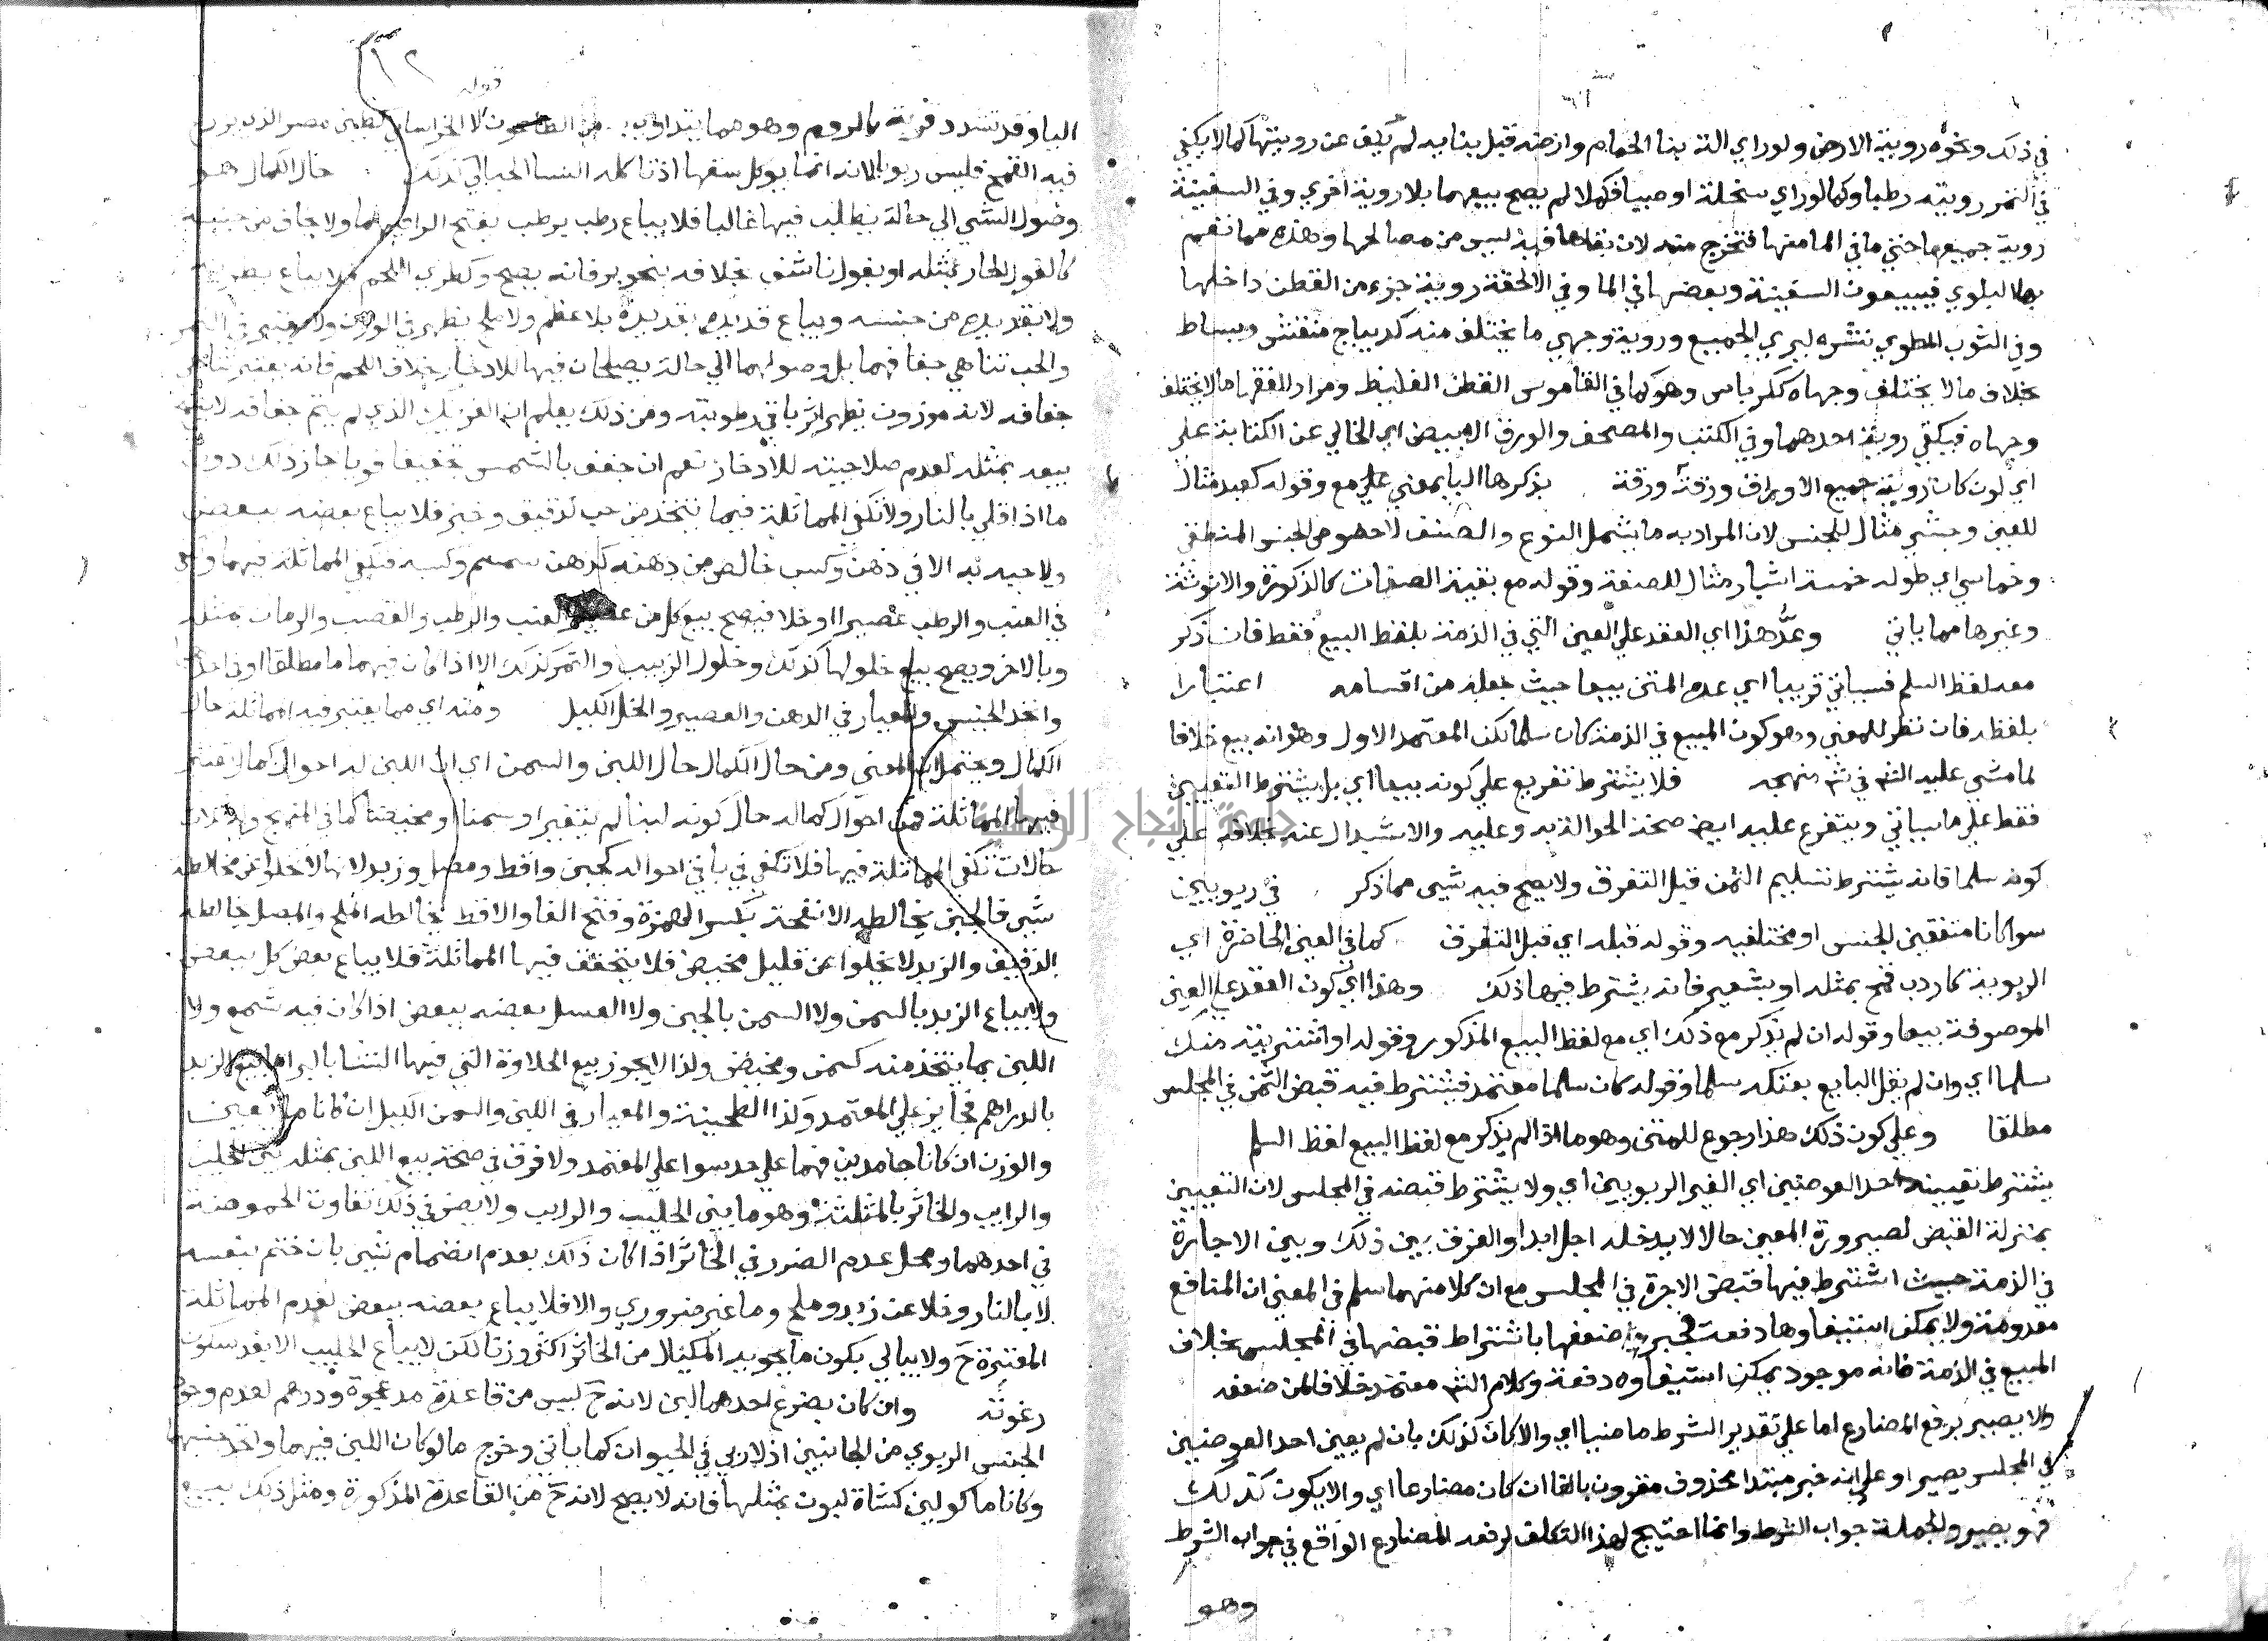 في ذلك ونحوه روية الارض ولو راي الة بنا الحمام وارضه قبل بنايه لم يكف عن رويتها كما لا يكفي
في التمر رويته رطبا وكما لو راي سخلة او صبيا فكملا لم يصح بيعهما بلا روية اخري وفي السفينة
روية جميعها حتي ما في الما منها فتخرج منه لان بقاها فيه ليس من مصالحها وهذه مما تعم
بها البلوي فيبيعون السفينة وبعضها في الما وفي الالحفة روية جزء من القطن داخلها
وفي الثوب المطوي نشره ليري الجميع وروية وجهي ما يختلف منه كديباج منقش وبساط
بخلاف ما لا يختلف وجهاه ككرباس وهو كما في القاموس القطن الغليظ ومراد الفقها ما لا يختلف
وجهاه فيكفي روية احدهما وفي الكتب والمصحف والورق الابيض اي الخالي عن الكتابة علي
اي لون كان روية جميع الاوراق ورقة ورقة بذكرها البا بمعني علي مع وقوله كعبد مثال
للعين وحبشي مثال للجنس لان المراد به ما يشمل النوع والصنف لا خصوص الجنس المنطقي
وخماسي اي طوله خمسة اشبار مثال للصفة وقوله مع بقية الصفات كالذكورة والانوثة
وغيرها مما ياتي وعد هذا اي العقد علي العين التي في الذمة بلفظ البيع فقط فان ذكر
معه لفظ السلم فسياتي قريبا اي عده المتن بيعا حيث جعله من اقسامه اعتبارا
بلفظه فان نظر للمعني وهو كون المبيع في الذمة كان سلما لكن المعتمد الاول وهو انه بيع خلافا
لما مشي عليه الش في ش منهجه فلا يشترط تفريع علي كونه بيعا اي بل يشترط التعيين
فقط علي ما سياتي ويتفرع عليه ايض صحة الحوالة به وعليه والاستبدال عنه بخلافه علي
كونه سلما فانه يشترط تسليم الثمن قبل التفرق ولا يصح فيه شي مما ذكر في ربويين
سوا كانا متفقين الجنس او مختلفيه وقوله قبله اي قبل التفرق كما في العين الحاضرة اي
الربوية كاردب قمح بمثله او بشعير فانه يشترط فيها ذلك وهذا اي كون العقد علي العين
الموصوفة بيعا وقوله ان لم يذكر مع ذلك اي مع لفظ البيع المذكور وقوله او اشتريته منك
سلما اي وان لم يقل البايع بعتكه سلما وقوله كان سلما معتمد فيشترط فيه قبض الثمن في المجلس
مطلقا وعلي كون ذلك هذا رجوع للمتن وهو ما اذا لم يذكر مع لفظ البيع لفظ السلم
يشترط تعيين احد العوضين اي الغير الربويين اي ولا يشترط قبضه في المجلس لان التعيين
بمنزلة القبض لصيرورة المعين حالا لا يدخله اجل ابدا والفرق بين ذلك وبين الاجارة
في الذمة حيث اشترط فيها قبض الاجرة في المجلس مع ان كلا منهما سلم في المعني ان المنافع
معدومة ولا يمكن استيفاوها دفعة فجبروا ضعفها باشتراط قبضها في المجلس بخلاف
المبيع في الذمة فانه موجود يمكن استيفاوه دفعة وكلام الش معتمد خلافا لمن ضعفه
والا يصير برفع المضارع اما علي تقدير الشرط ماضيا اي والا كان كذلك بان لم يعين احد العوضين
في المجلس يصير او علي انه خبر مبتدا محذوف مقرون بالفا ان كان مضارعا اي والا يكون كذلك
فهو يصير والجملة جواب الشرط وانما احتيج لهذا التكلف لرفعه المضارع الواقع في جواب الشرط
وهو
١٢
قوله
اليا وقد تشدد قرية بالروم وهو مما يتداوي به من الطاعون لا الخراساني كطين مصر الذي يزرع
فيه القمح فليس ربويا لانه انما يوكل سفها اذ تاكله النسا الحبالي كذلك حال الكمال هو
وصول الشي الي حالة يطلب فيها غالبا فلا يباع رطب برطب بفتح الرا فيهما ولا بجاف من جنسه
كالفول الحار بمثله او بفول ناشف بخلافه بنحو بر فانه يصح وكطري اللحم فلا يباع بطريه
ولا بقديده من جنسه ويباع قديده بقديده بلا عظم ولا ملح يظهر في الوزن ولا يعتبر في التمر
والحب تناهي جفافهما بل وصولهما الي حالة يصلحان فيها للادخار بخلاف اللحم فانه يعتبر تناهي
جفافه لانه موزون يظهر اثر باقي رطوبته ومن ذلك يعلم ان الفريك الذي لم يتم جفافه لا يصح
بيعه بمثله لعدم صلاحيته للادخار نعم ان جفف بالشمس تجفيفا قويا جاز ذلك دون
ما اذا قلي بالنار ولا تكفي المماثلة فيما يتخذ من حب كدقيق وخبز فلا يباع بعضه ببعض
ولا حبه به الا في دهن وكسب خالص من دهنه كدهن سمسم وكسبه فتكفي المماثلة فيهما وتكفي
في العنب والرطب عصيرا او خلا فيصح بيع كل من عصير العنب والرطب والقصب والرمان بمثله
وبالاخر ويصح بيع خلولها كذلك وخلول الزبيب والتمر كذلك الا اذا كان فيهما ما مطلقا او في احدهما
واتحد الجنس والمعيار في الدهن والعصير والخل الكيل ومنه اي مما يعتبر فيه المماثلة حال
الكمال ويحتمل ان المعني ومن حال الكمال حال اللبن والسمن اي ان اللبن له احوال كمال يعتبر
فيها المماثلة فمن احوال كماله حال كونه لبنا لم يتغير او سمنا او مخيضا كما في المنهج
حالات تكفي المماثلة فيها فلا تكفي في باقي احواله كجبن واقط ومصل وزبد لانها لا تخلوا عن مخالطة
شي فالجبن يخالطه الانفحة بكسر الهمزة وفتح الفا والاقط يخالطه الملح والمصل يخالطه
الدقيق والزبد لا يخلوا عن قليل مخيض فلا يتحقق فيها المماثلة فلا يباع بعض كل ببعض
ولا يباع الزبد بالسمن ولا السمن بالجبن ولا العسل بعضه ببعض اذا كان فيه شمع ولا
اللبن بما يتخذ منه كسمن ومخيض ولذا لا يجوز بيع الحلاوة التي فيها النشا بالدراهم بيع الزبد
بالدراهم فجايز علي المعتمد وكذا الطحينة والمعيار في اللبن والسمن الكيل ان كانا مايعين
والوزن ان كانا جامدين فهما علي حد سوا علي المعتمد ولا فرق في صحة بيع اللبن بمثله بين الحليب
والرايب والخاثر بالمثلثة وهو ما بين الحليب والرايب ولا يضر في ذلك تفاوت الحموضة
في احدهما ومحل عدم الضرر في الخاثر اذا كان ذلك بعدم انضمام شي بان ختم بنفسه
لا بالنار وخلا عن زبد وملح وما غير ضروري والا فلا يباع بعضه ببعض لعدم المماثلة
المعتبرة ح ولا يبالي بكون ما يحويه المكيال من الخاثر اكثر وزنا لكن لا يباع الحليب الا بعد سكون
رغوته وان كان بضرع احدهما لبن لانه ح ليس من قاعدة مد عجوة ودرهم لعدم وجود
الجنس الربوي من الجانبين اذ لا ربي في الحيوان كما ياتي وخرج ما لو كان اللبن فيهما واتحد جنسهما
وكانا ماكولين كشاة لبون بمثلها فانه لا يصح لانه ح من القاعدة المذكورة ومثل ذلك بيع
جامعة النجاح الوطنية